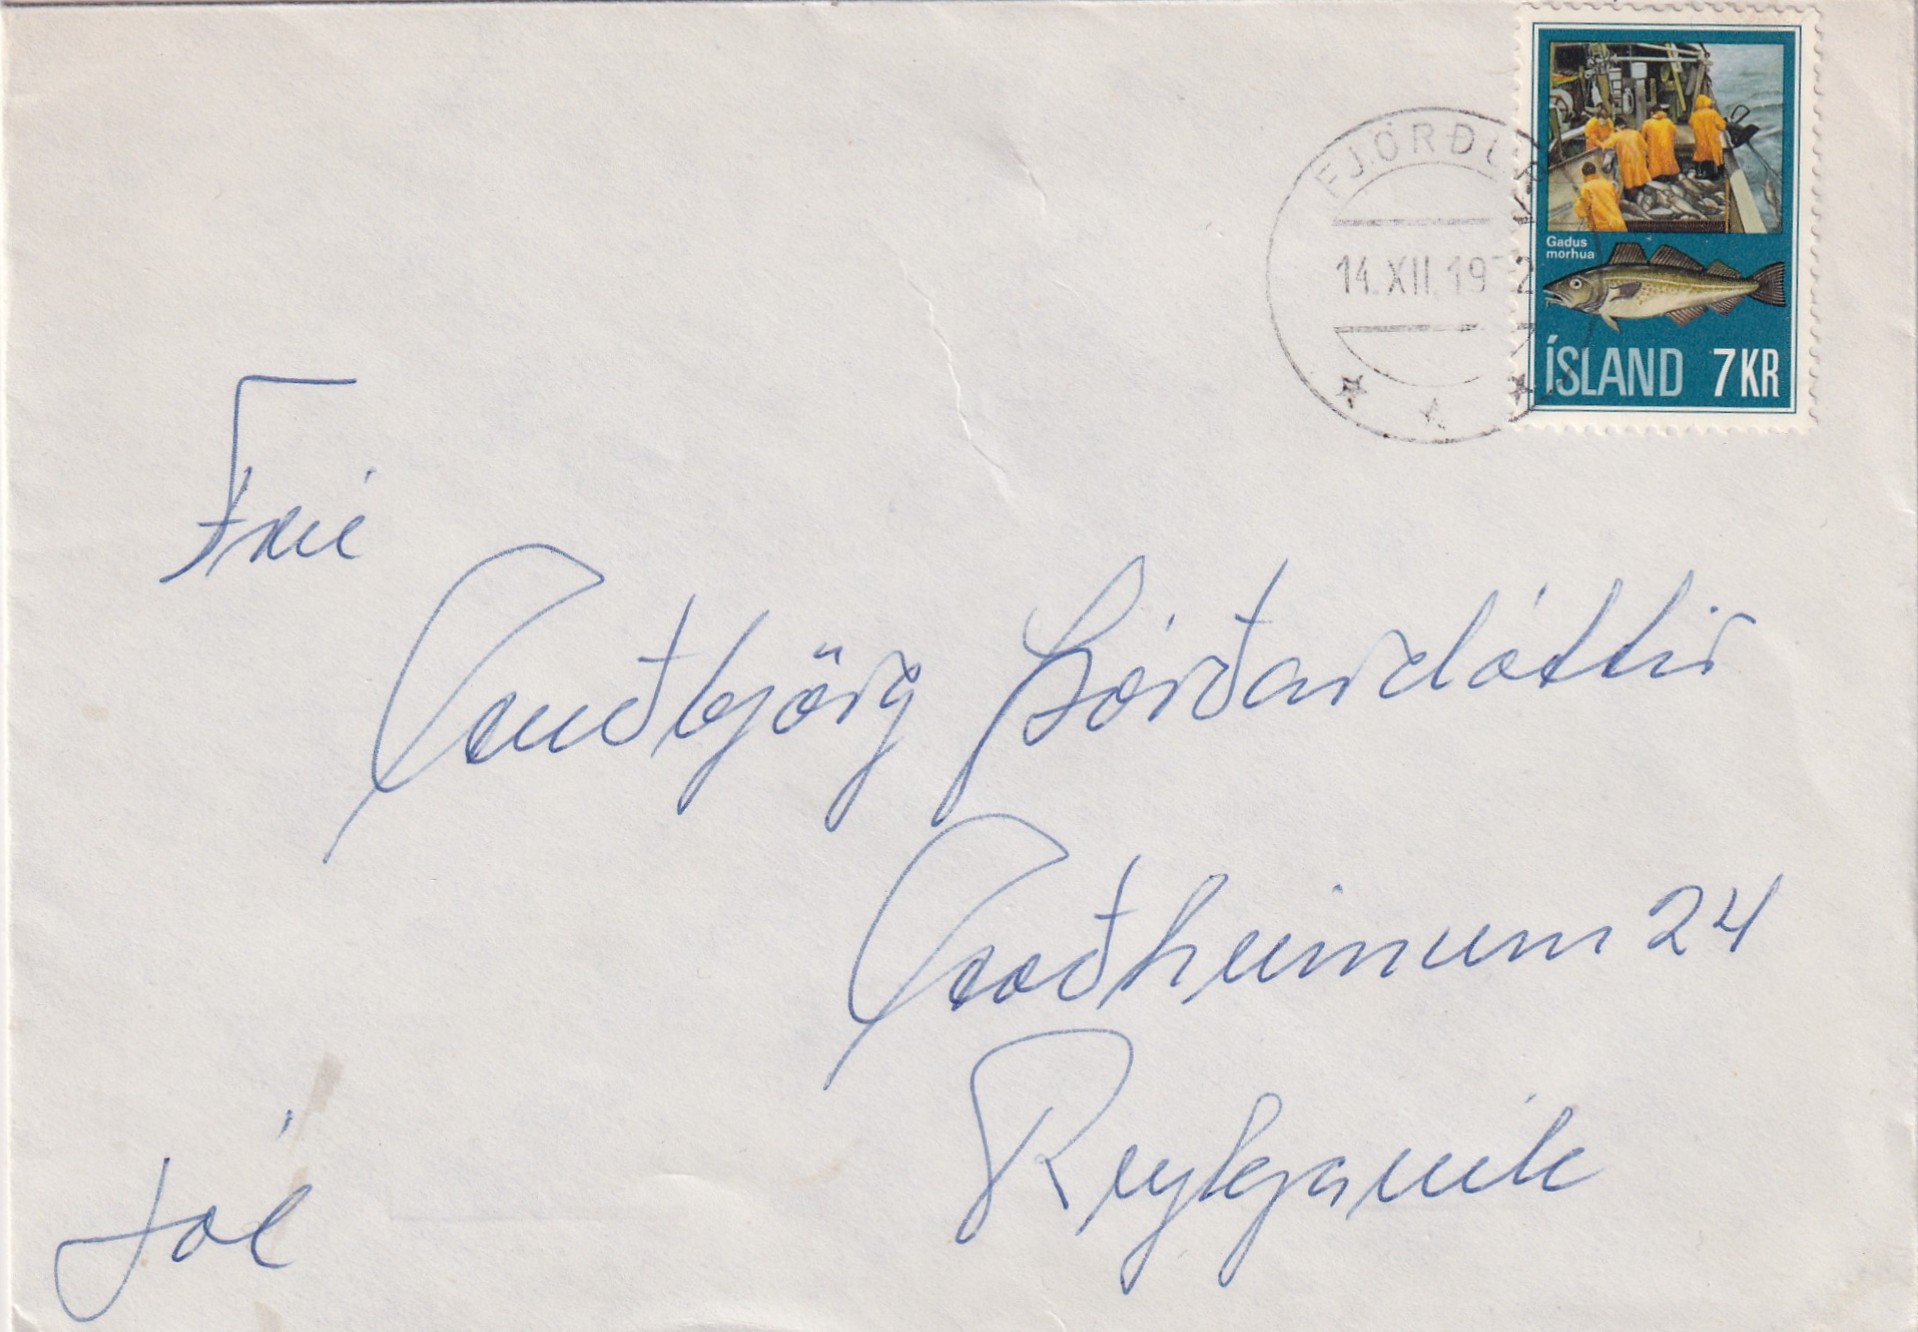 FJÖRÐUR
14.XII.1972
Gadus
morhua
ÍSLAND 7KR
Frú
Guðbjörg Þórðardóttir
Goðheimum 24
Reykjavik
Jól